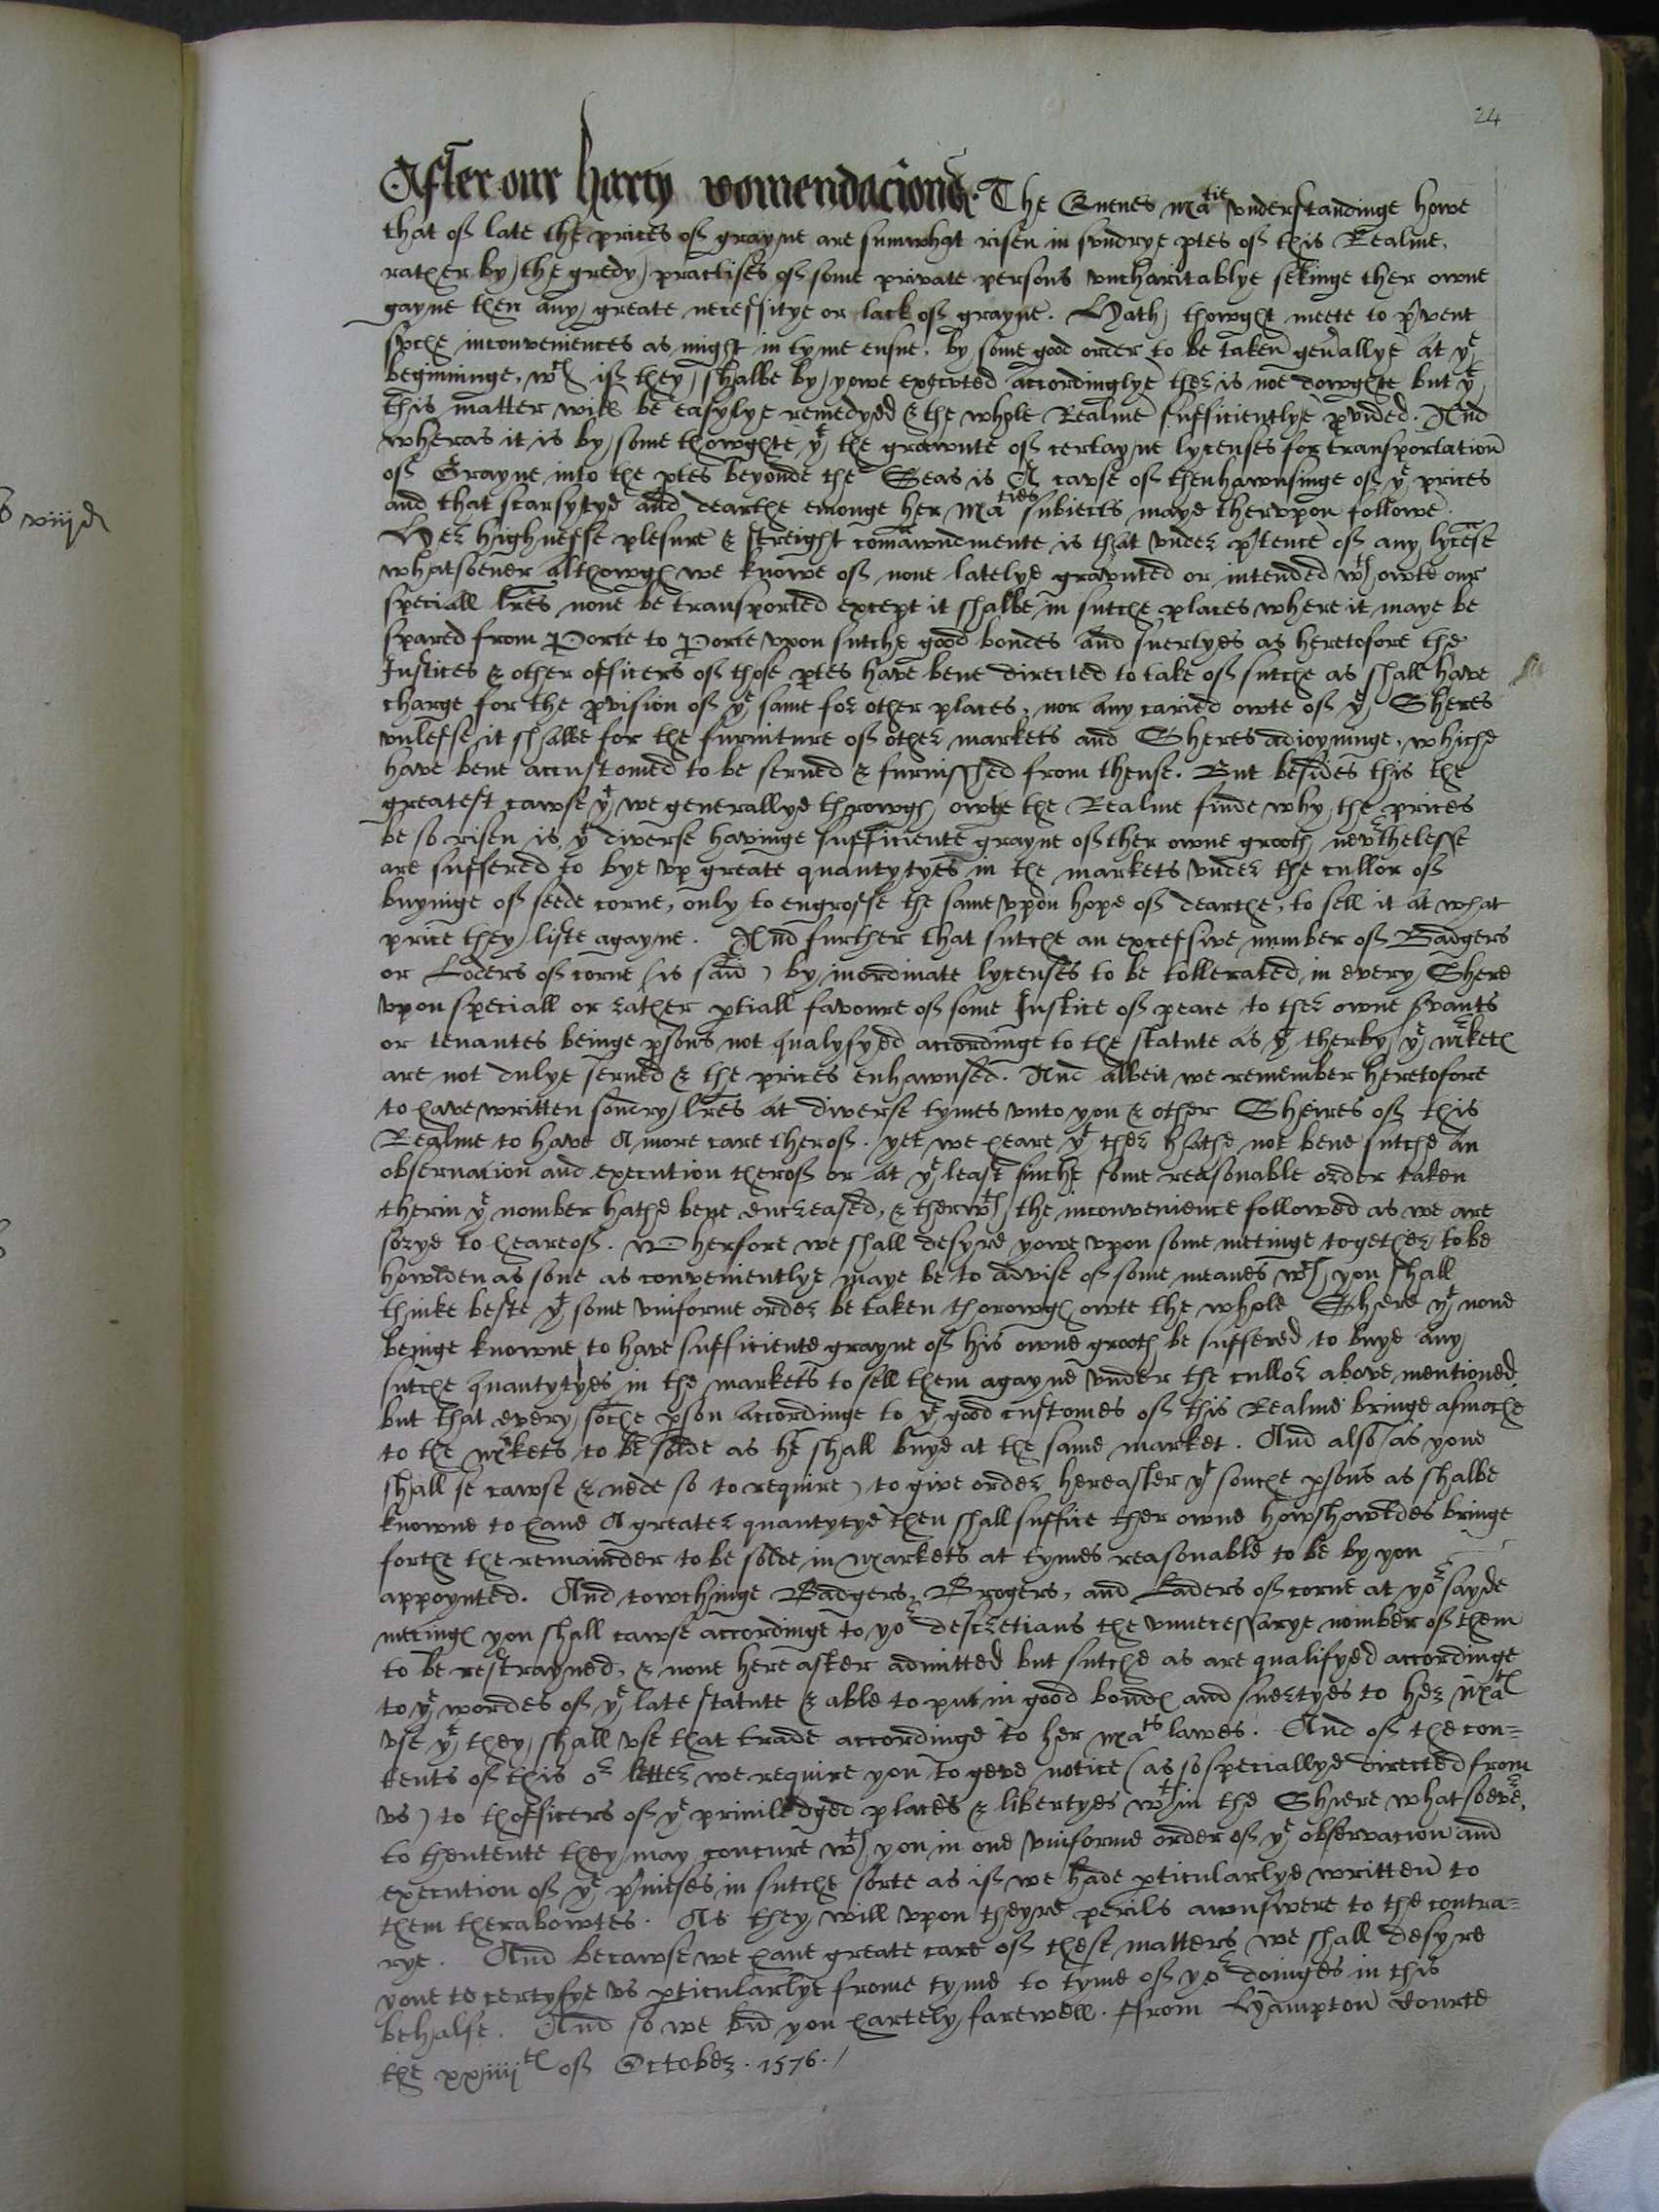 24
After our harty comendacions. The Quenes Matie vnderstandinge howe
that of late the prices of grayne are sumwhat risen in sundrye ptes of this Realme,
rather by the gredy practises of some private persons vncharitablye sekinge ther owne
gayne then any greate necessitye or lack of grayne. Hath thowght meete to pvent
suche inconveniences as might in tyme ensue, by some good order to be taken genallye at ye
beginninge, wch if they shalbe by yowe executed accordinglye ther is not dowghte but yt
this matter will be easylye remedyed & the whole Realme sufficientlye pvided. And
wheras it is by some thowghte yt the grawnte of certayne lycenses for transportation
of Grayne into the ptes beyonde the Seas is A cause of thenhawnsinge of ye prices
and that scarsytye and dearthe emonge her Maties subiects maye thervpon followe.
Her highnesse plesure & streight comawndmente is that vnder ptence of any lycense
whatsoeuer althowgh we knowe of none latelye graunted or intended wthowte our
speciall lres none be transported except it shalbe in sutche places where it maye be
spared from Porte to Porte vpon sutche good bondes and suertyes as heretofore the
Justices & other officers of those ptes have bene directed to take of sutche as shall have
charge for the pvision of ye same for other places, nor any caried owte of ye Sheres
vnlesse it shalbe for the furniture of other markets and Sheres adioyninge, whiche
have bene accustomed to be serued & furnisshed from thense. But besides this the
greatest cawse yt we generallye throwgh owte the Realme finde why the prices
be so risen is yt diverse havinge sufficiente grayne of ther owne grooth nevthelesse
are suffered to bye vp greate quantytyes in the markets vnder the cullor of
buyinge of seede corne, only to engrosse the same vpon hope of dearthe, to sell it at what
price they liste agayne. And further that sutche an excessive number of Badgers
or Loders of corne (is said) by inordinate lycenses to be tollerated in every Shere
vpon speciall or rather ptiall favoure of some Justice of peace to ther owne svants
or tenantes beinge psons not qualyfyed accordinge to the statute as yt therby ye mketes
are not dulye serued & the prices enhawnsed. And albeit we remember heretofore
to have written sondry lres at diverse tymes vnto you & other Sheires of this
Realme to have A more care therof. yet we heare yt ther hathe not bene sutche an
obseruacion and execution therof or at ye least suche some reasonable order taken
therin ye nomber hathe bene encreased, & therwth the inconvenience followed as we are
sorye to heare of. Wherfore we shall desyre yowe vpon some metinge together to be
howlden as sone as convenientlye maye be to advise of some meanes wch you shall
thinke beste yt some vniforme order be taken thorowgh owte the whole Shere yt none
beinge knowne to have sufficiente grayne of his owne grooth be suffered to buye any
sutche quantytyes in the markets to sell them agayne vnder the cullor above mentioned
but that every soche pson accordinge to ye good customes of this Realme bringe asmoche
to the mkets to be solde as he shall buye at the same market. And also (as youe
shall se cawse & nede so to require) to give order hereafter yt souche psons as shalbe
knowne to haue A greater quantytye then shall suffice ther owne howshowldes bringe
forthe the remainder to be solde in Markets at tymes reasonable to be by you
appoynted. And towchinge Badgers, Brogers, and Laders of corne at yor sayde
metinge you shall cawse accordinge to yor descretions the vnnecessarye nomber of them
to be restrayned, & none here after admitted but sutche as are qualifyed accordinge
to ye wordes of ye late statute & able to put in good bondes and suertyes to her Mats
vse yt they shall vse that trade accordinge to her Mats lawes. And of the con=
tents of this or letter we require you to geve notice (as so speciallye directed from
vs) to thofficers of ye priuiledged places & libertyes wthin the Shiere whatsoever,
to thentente they may concure wth you in one vniforme order of ye observacion and
execution of ye pmises in sutche sorte as if we hade pticularlye written to
them therabowtes. As they will vpon theyre perils awnswere to the contra=
rye. And becawse we haue greate care of these matters we shall desyre
youe to certyfye vs pticularlye frome tyme to tyme of yor doinges in this
behalfe. And so we bid you hartely farewell. From Hampton Courte
the xxiiijth of October. 1576./
viijd